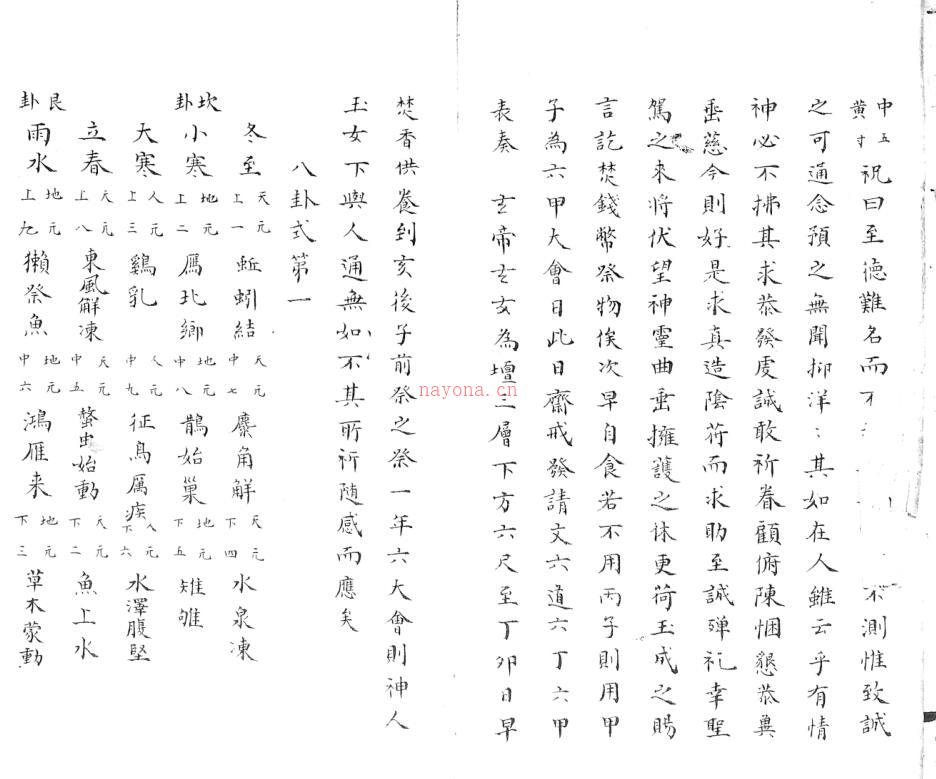 中五黃寸祝曰至德難名而不 不測惟致誠
之可通念預之無聞抑洋〻其如在人雖云乎有情
神必不拂其求恭發虔誠敢祈眷顧俯陳悃懇恭奠
垂慈今則好是求真造陰符而求助至誠殫礼幸聖
駕之來將伏望神靈曲垂擁護之休更荷玉成之賜
言訖焚錢幣祭物俟次早自食若不用丙子則用甲
子為六甲大會日此日齋戒發請文六道六丁六甲
表奏 玄帝玄女為壇三層下方六尺至丁夘日早
焚香供養到亥後子前祭之祭一年六大會則神人
玉女下與人通無如不其所祈随感而應矣
八卦式第一
坎卦
冬至 天元上一 蚯蚓結 天元中七 麋角解 天元下四 水泉凍
小寒 地元上二 鴈北鄉 地元中八 鵲始巢 地元下五 雉雊
大寒 人元上三 鷄乳 人元中九 征鳥厲疾 人元下六 水澤腹堅
艮卦
立春 天元上八 東風解凍 天元中五 蟄虫始動 天元下二 魚上水
雨水 地元上九 獺祭魚 地元中六 鴻雁来 地元下三 草木蒙動
nayona.cn